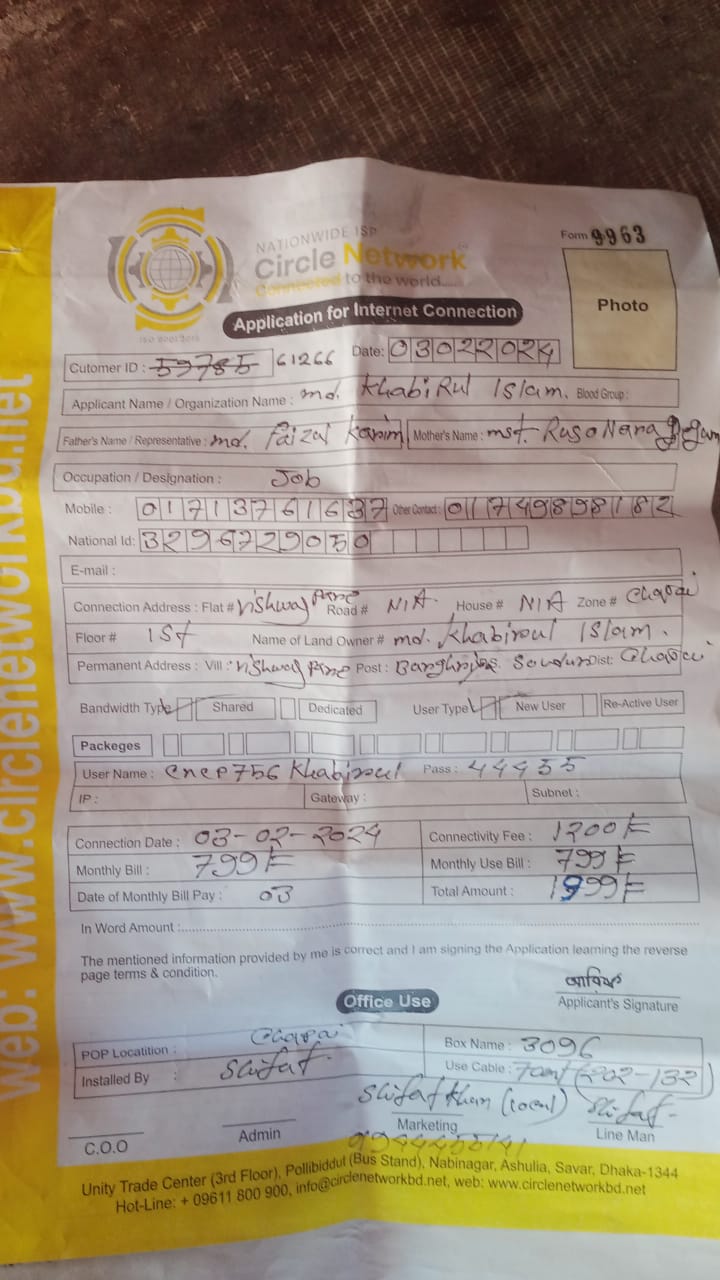 NATIONWIDE ISP
Circle Network
Connected to the world......
ISO 9001:2015
Form 9963
Photo
Application for Internet Connection
Cutomer ID : 59785 61266 Date: 03022024
Applicant Name / Organization Name : md. Khabirul Islam. Blood Group :
Father's Name / Representative : md. Faizul Karim Mother's Name : mst.
Occupation / Designation : Job
Mobile : 01713761637 Other Contact : 01749898182
National Id: 3296729050
E-mail :
Connection Address : Flat # Road # N/A House # N/A Zone #
Floor # 1St Name of Land Owner # md. Khabiroul Islam.
Permanent Address : Vill : Post : Dist:
Bandwidth Type Shared Dedicated User Type New User Re-Active User
Packeges
User Name : cncp756 Khabiroul Pass : 44455
IP : Gateway : Subnet :
Connection Date : 03-02-2024 Connectivity Fee : 1200
Monthly Bill : 799 Monthly Use Bill : 799
Date of Monthly Bill Pay : 03 Total Amount : 1999
In Word Amount :
The mentioned information provided by me is correct and I am signing the Application learning the reverse
page terms & condition.
Applicant's Signature
Office Use
POP Locatition : Box Name : 3096
Installed By : Shifat Use Cable : (202-132)
Shifat Khan (local) Shifat
C.O.O Admin Marketing Line Man
Unity Trade Center (3rd Floor), Pollibiddut (Bus Stand), Nabinagar, Ashulia, Savar, Dhaka-1344
Hot-Line: + 09611 800 900, info@circlenetworkbd.net, web: www.circlenetworkbd.net
web: www.circlenetworkbd.net